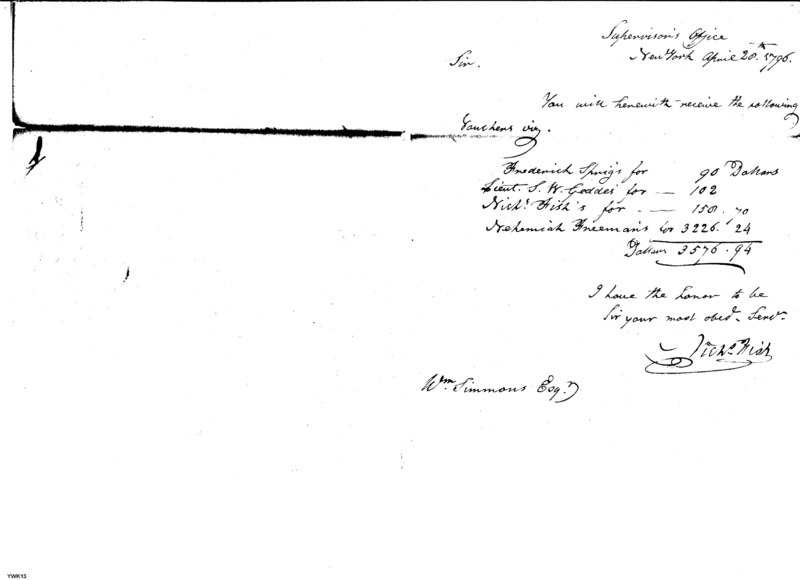 Supervisor's Office
New York April 28.th 1796.
Sir.
You will herewith receive the following
Vouchers viz.
Frederick Sprigs for 90 Dollars
Lieut. S. W. Geddes' for — 102
Nichs. Fish's for . — 158. 70
Nehemiah Freeman's for 3226. 24
Dollars 3576.94
I have the honor to be
Sir your most obedt. Servt.
Nichs Fish
Wm. Simmons Esqr.
YWK13